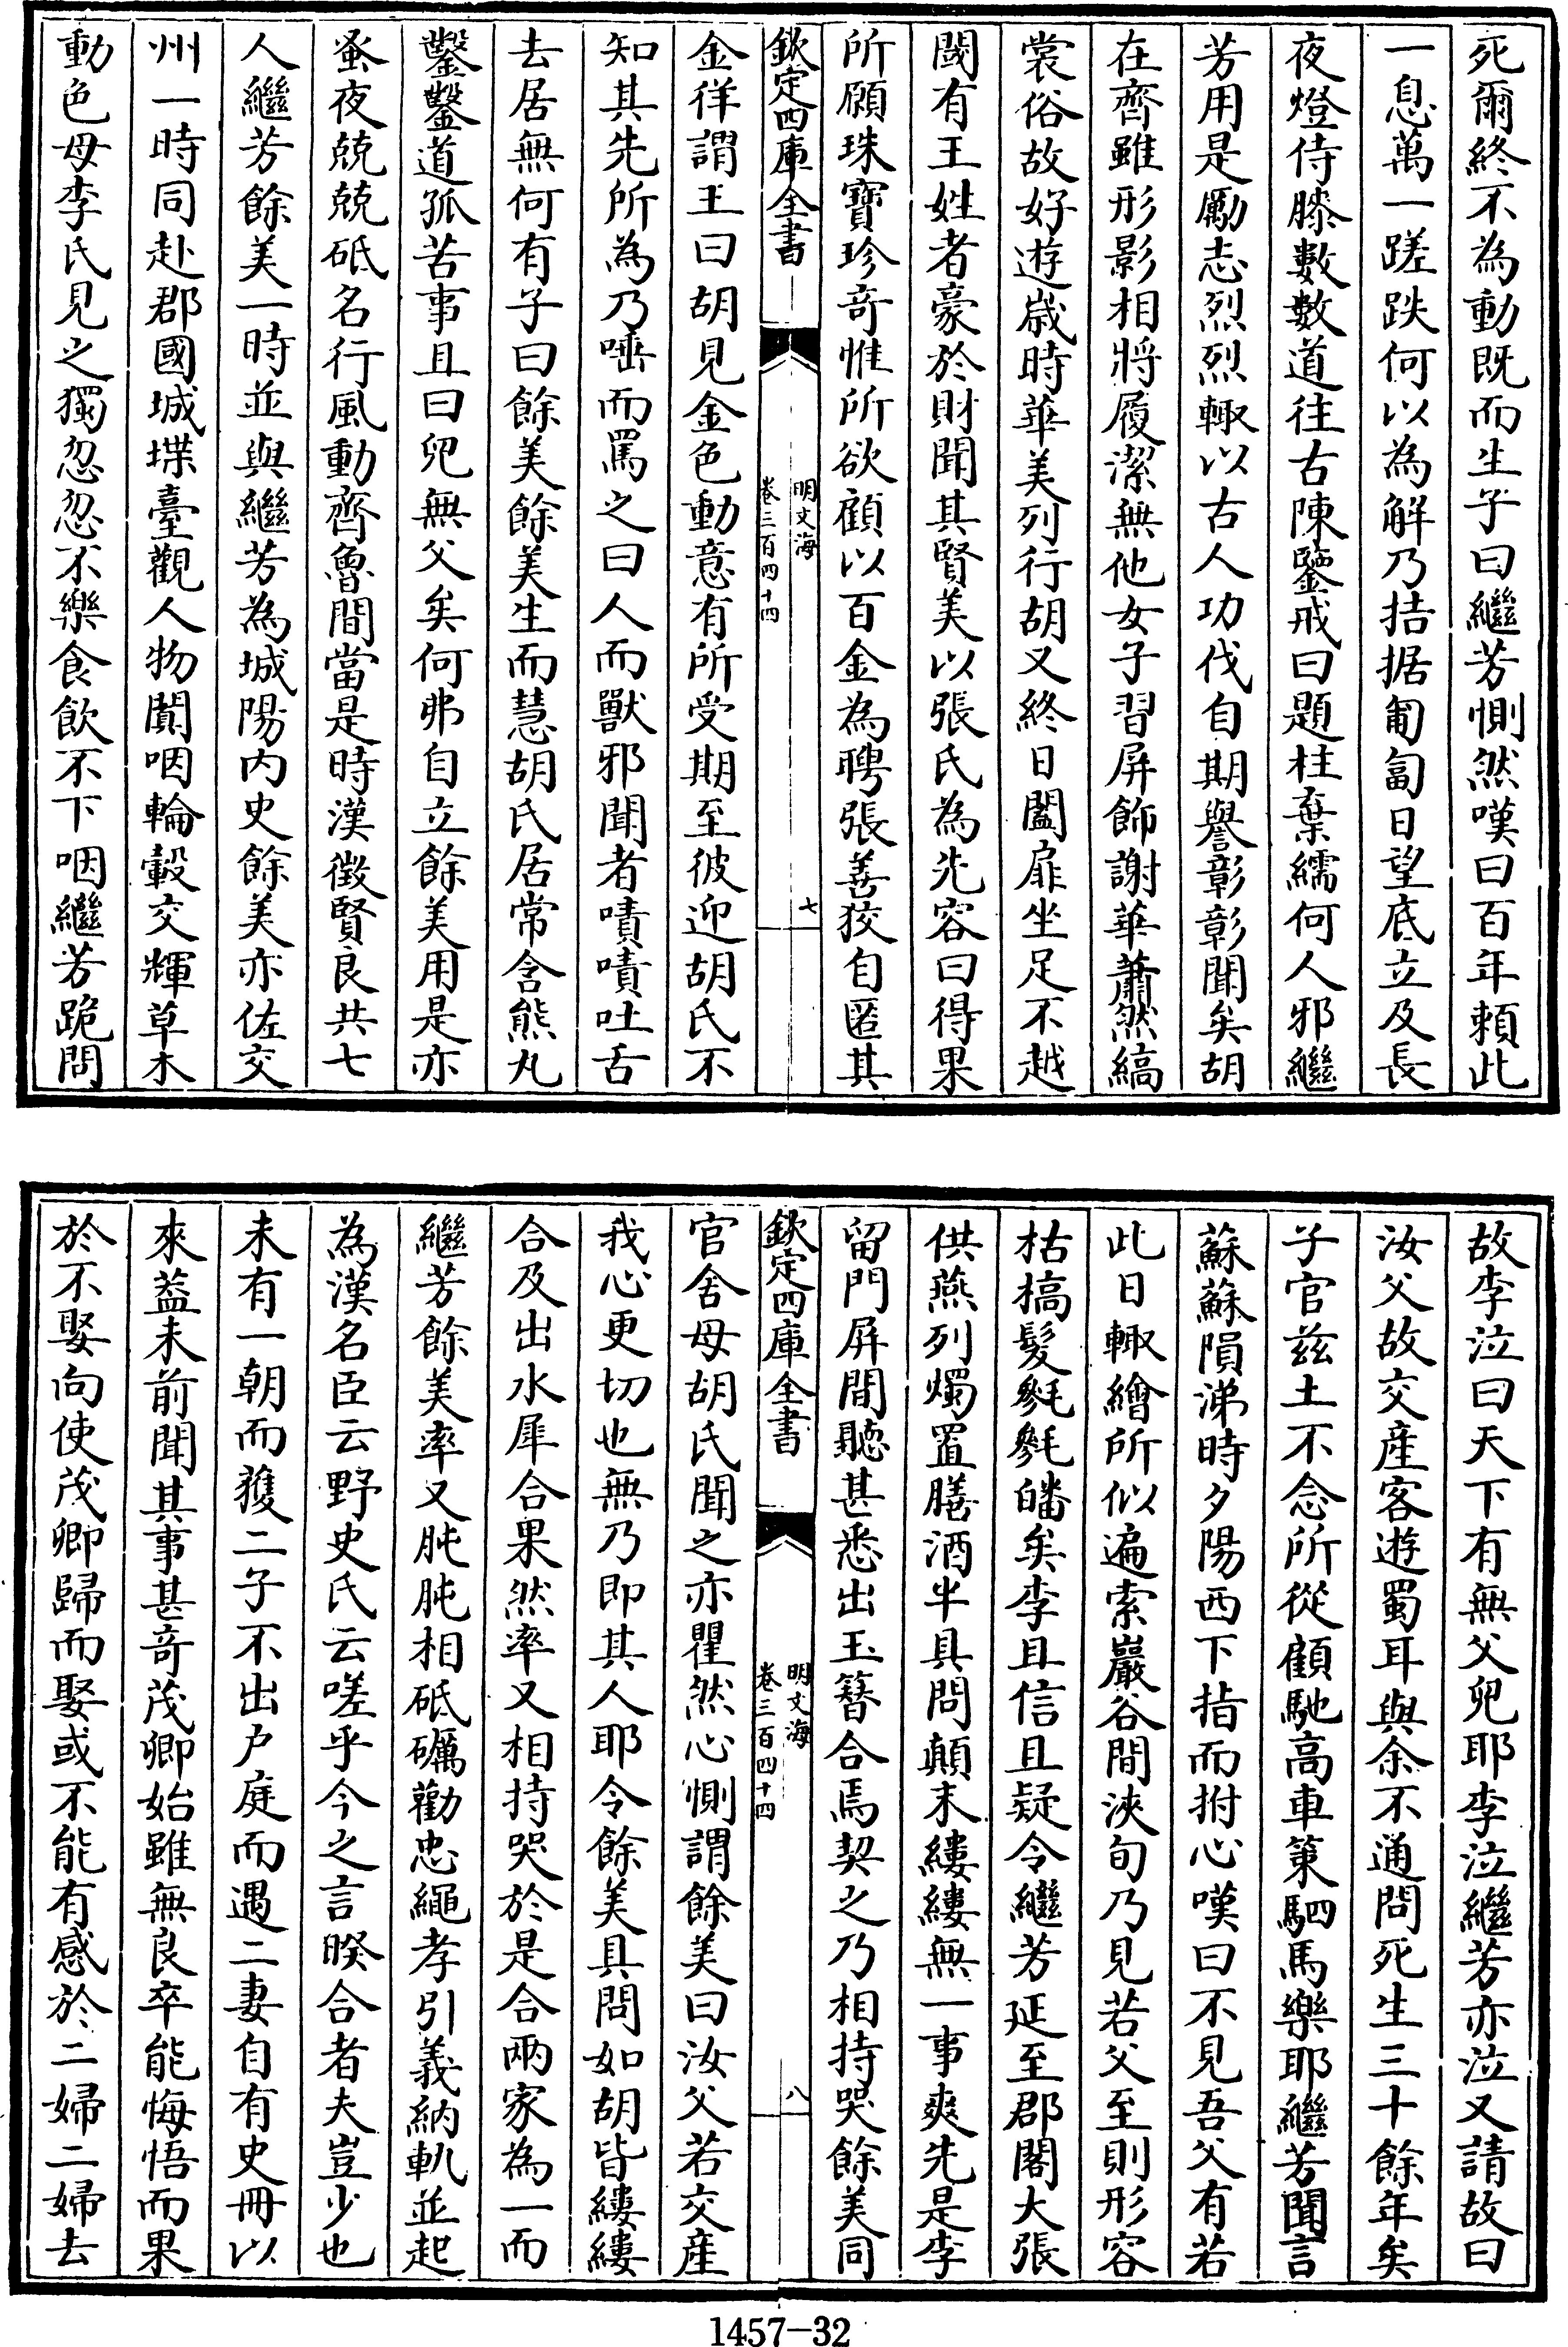 死爾終不為動既而生子曰繼芳惻然嘆曰百年頼此
一息萬一蹉跌何以為解乃拮据匍匐日望底立及長
夜燈侍膝數數道往古陳鑒戒曰題柱棄繻何人邪繼
芳用是勵志烈烈輙以古人功伐自期譽彰彰聞矣胡
在齊雖形影相將履潔無他女子習屏飾謝華蕭然縞
裳俗故好遊歲時華美列行胡又終日闔扉坐足不越
閾有王姓者豪於財聞其賢美以張氏為先容曰得果
所願珠寶珍竒惟所欲顧以百金為聘張善狡自匿其
欽定四庫全書
明文海
卷三百四十四
七
金徉謂王曰胡見金色動意有所受期至彼迎胡氏不
知其先所為乃唾而罵之曰人而獸邪聞者嘖嘖吐舌
去居無何有子曰餘美餘美生而慧胡氏居常含熊丸
鑿鑿道孤苦事且曰兒無父矣何弗自立餘美用是亦
蚤夜兢兢砥名行風動齊魯間當是時漢徴賢良共七
人繼芳餘美一時並與繼芳為城陽内史餘美亦佐交
州一時同赴郡國城堞臺觀人物闐咽輪轂交輝草木
動色母李氏見之獨忽忽不樂食飲不下咽繼芳跪問
故李泣曰天下有無父兒耶李泣繼芳亦泣又請故曰
汝父故交産客遊蜀耳與余不通問死生三十餘年矣
子官兹土不念所從顧馳高車策駟馬樂耶繼芳聞言
蘇蘇隕涕時夕陽西下指而拊心嘆曰不見吾父有若
此日輙繪所似遍索巖谷間浹旬乃見若父至則形容
枯槁髪毿毿皤矣李且信且疑令繼芳延至郡閣大張
供燕列燭置膳酒半具問顛末縷縷無一事爽先是李
留門屏間聽甚悉出玉簪合焉契之乃相持哭餘美同
欽定四庫全書
明文海
卷三百四十四
八
官舍母胡氏聞之亦瞿然心惻謂餘美曰汝父若交産
我心更切也無乃即其人耶令餘美具問如胡皆縷縷
合及出水犀合果然率又相持哭於是合兩家為一而
繼芳餘美率又肫肫相砥礪勸忠繩孝引義納軌並起
為漢名臣云野史氏云嗟乎今之言暌合者夫豈少也
未有一朝而獲二子不出户庭而遇二妻自有史冊以
來葢未前聞其事甚竒茂卿始雖無良卒能悔悟而果
於不娶向使茂卿歸而娶或不能有感於二婦二婦去
1457-32